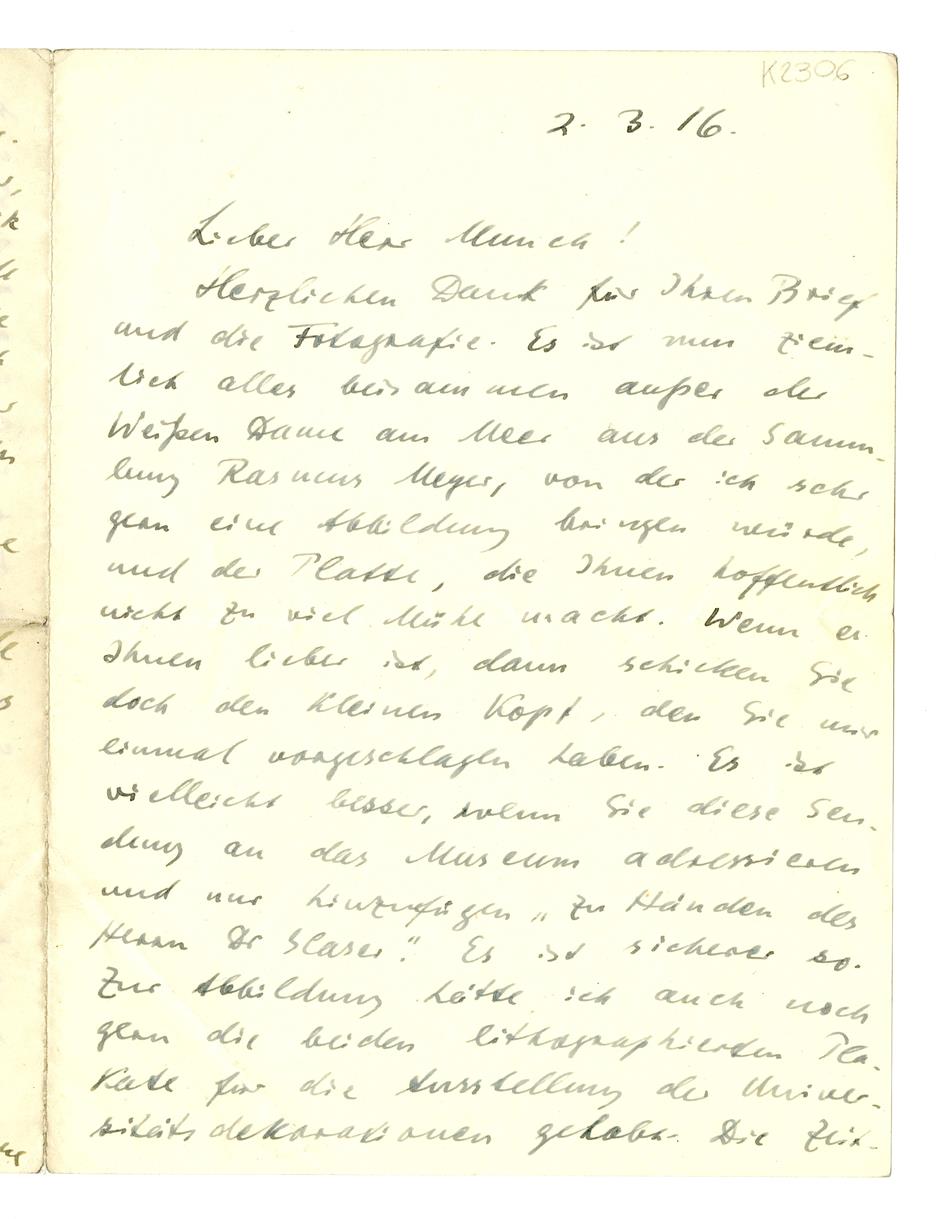 K2306
2. 3. 16.
Lieber Herr Munch!
Herzlichen Dank für Ihren Brief
und die Fotografie. Es ist nun ziem-
lich alles beisammen außer der
Weißen Dame am Meer aus der Samm-
lung Rasmus Meyer, von der ich sehr
gern eine Abbildung bringen würde,
und der Platte, die Ihnen hoffentlich
nicht zu viel Mühe macht. Wenn es
Ihnen lieber ist, dann schicken Sie
doch den kleinen Kopf, den Sie mir
einmal vorgeschlagen haben. Es ist
vielleicht besser, wenn Sie diese Sen-
dung an das Museum adressieren
und nur hinzufügen „Zu Händen des
Herrn Dr Glaser". Es ist sicherer so.
Zur Abbildung hätte ich auch noch
gern die beiden lithographierten Pla-
kate für die Ausstellung der Univer-
sitätsdekorationen gehabt. Die Zeit-